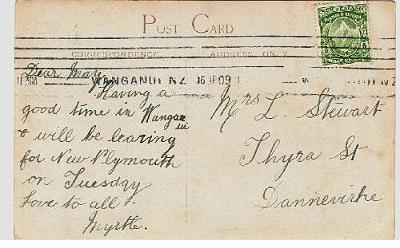 POST CARD
CORRESPONDENCE
ADDRESS ONLY
NEW ZEALAND
WANGANUI NZ 16 AP 09
Dear May
Having a
good time in Wangan
ui
& will be leaving
for New Plymouth
on Tuesday
Love to all.
Myrtle.
Mrs L. Stewart
Thyra St
Dannevirke